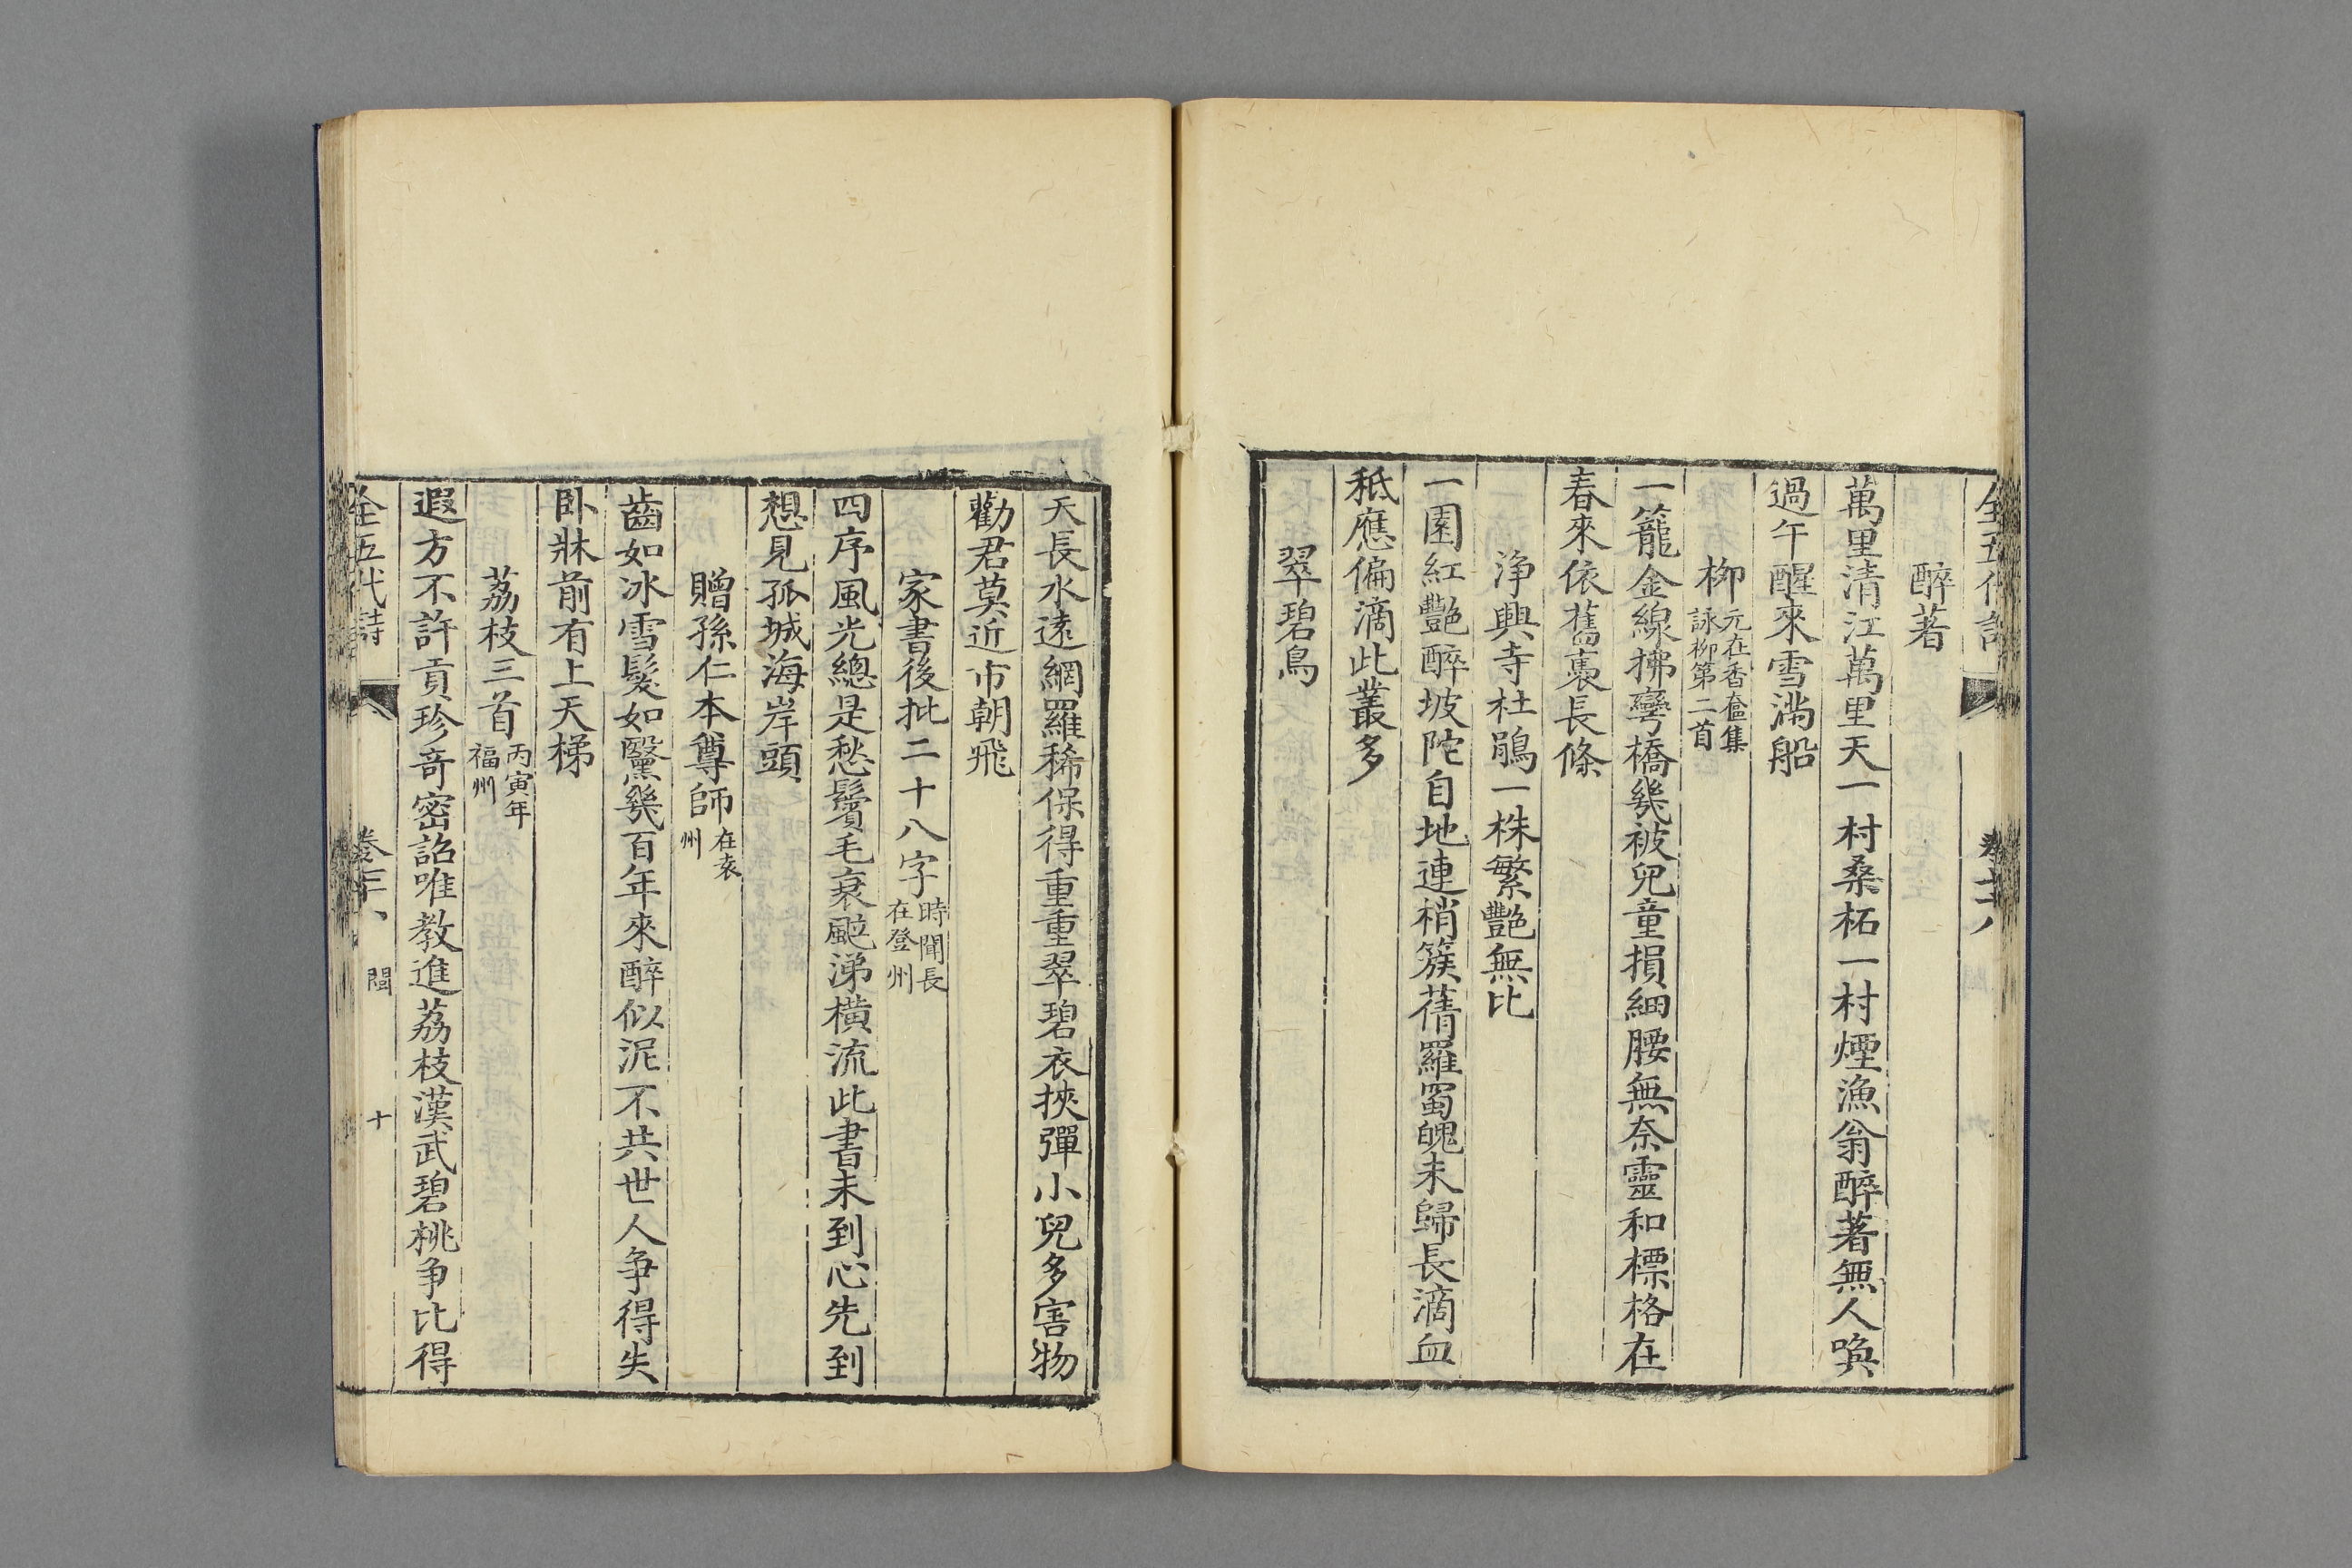 全五代詩
醉著
萬里清江萬里天一村桑柘一村煙漁翁醉著無人喚
過午醒來雪滿船
柳元在香奩集詠柳第二首
一籠金線拂彎橋幾被兒童損細腰無奈靈和標格在
春來依舊裊長條
浄興寺杜鵑一株繁艷無比
一園紅艷醉坡陀自地連梢簇蒨羅蜀魄未歸長滴血
秖應偏滴此叢多
翠碧鳥
天長水遠網羅稀保得重重翠碧衣挾彈小兒多害物
勸君莫近市朝飛
家書後批二十八字時聞長在登州
四序風光總是愁鬢毛衰颯涕橫流此書未到心先到
想見孤城海岸頭
贈孫仁本尊師在袁州
齒如冰雪髮如黳幾百年來醉似泥不共世人争得失
卧牀前有上天梯
荔枝三首丙寅年福州
遐方不許貢珍奇密詔唯教進荔枝漢武碧桃争比得
全五代詩
閩
十